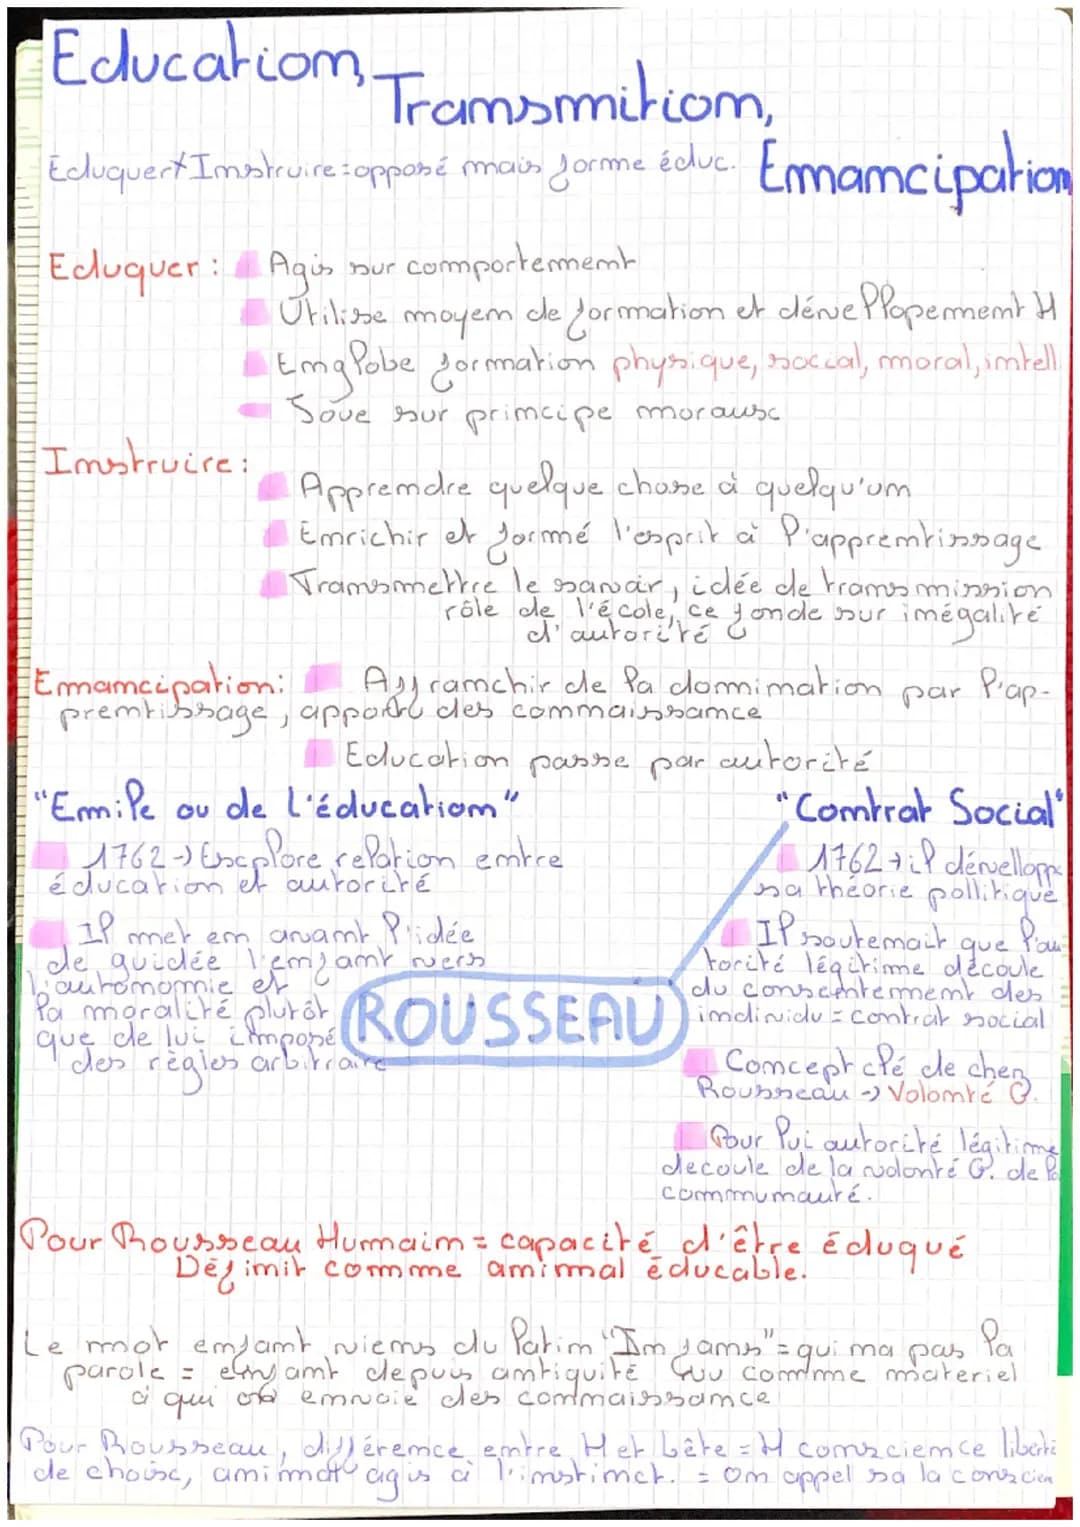 Education,
Transmition,
Emmancipation
Eduquer≠Instruire=opposé mais forme éduc.
Eduquer: Agis sur comportemment
Utilise moyen de formation et dévellopemment H
Englobe formation physique, social, moral, intell
Joue sur principe moraux
Instruire:
Apprendre quelque chose à quelqu'un
Enrichir et formé l'esprit à l'apprentissage
Transmettre le savoir, idée de transmission
rôle de l'école, ce fonde sur inégalité
d'autorité
Emmancipation: Affranchir de la domination par l'ap-
prentissage, apporte des connaissance
Education passe par autorité
"Emile ou de l'éducation"
1762 -> Explore relation entre
éducation et autorité
Il met en avant l'idée
de guidée l'enfant vers
l'autonomie et
la moralité plutôt
que de lui imposé
des règles arbitraire
ROUSSEAU
"Contrat Social"
1762 → il dévellopp
sa théorie pollitique
Il soutenait que l'au
torité légitime découle
du consentemment des
individu = contrat social
Concept clé de chez
Rousseau -> Volonté G.
Pour lui autorité légitime
decoule de la volonté G. de la
communauté.
Pour Rousseau Humain = capacité d'être éduqué
Définit comme animal éducable.
Le mot enfant viens du latin "In fans" = qui ma pas la
parole = enfant depuis antiquité vu comme materiel
à qui on envoie des connaissance
Pour Rousseau, différence entre H et bête = H conscience liberté
de choix, animal agis à l'instinct. = on appel sa la conscien